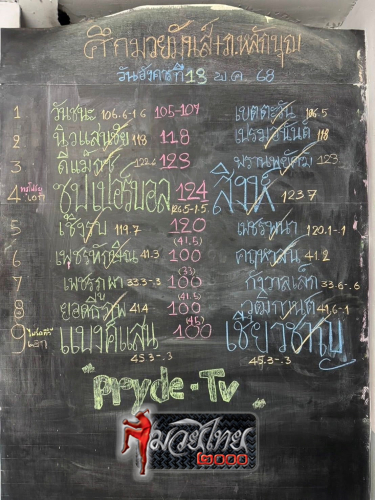 ศึกมวยมันส์ รภ.หลักบุญ
วันอังคารที่ 13 พ.ค. 68
1 วันชนะ 106.6-1.6 105-107 เขตตะวัน 106.5
2 นิวแสนชัย 118 118 เพชรมานินต์ 118
3 ดีแม็กซ์ 122.6 123 พรานพยัคฆ์ 123
4 ซุปเปอร์บอล 124 สิงห์ 123.7
125.5-1.5
5 เชิงรบ 119.7 120 เพชรพนา 120.1-.1
(41.5)
6 เพชรทักษิณ 41.3 100 41.2
(33)
7 เพชรภูผา 33.3-.3 100 กังวาลเล็ก 33.6-.6
(41.5)
8 ยอดธีรภพ 41.4 100 วุฒิกานต์ 41.6-.1
(45)
9 แบงค์แสน 100 เชี่ยวชาญ
45.3-.3 45.3-.3
Pryde-TV
มวยไทย
๒๐๐๐